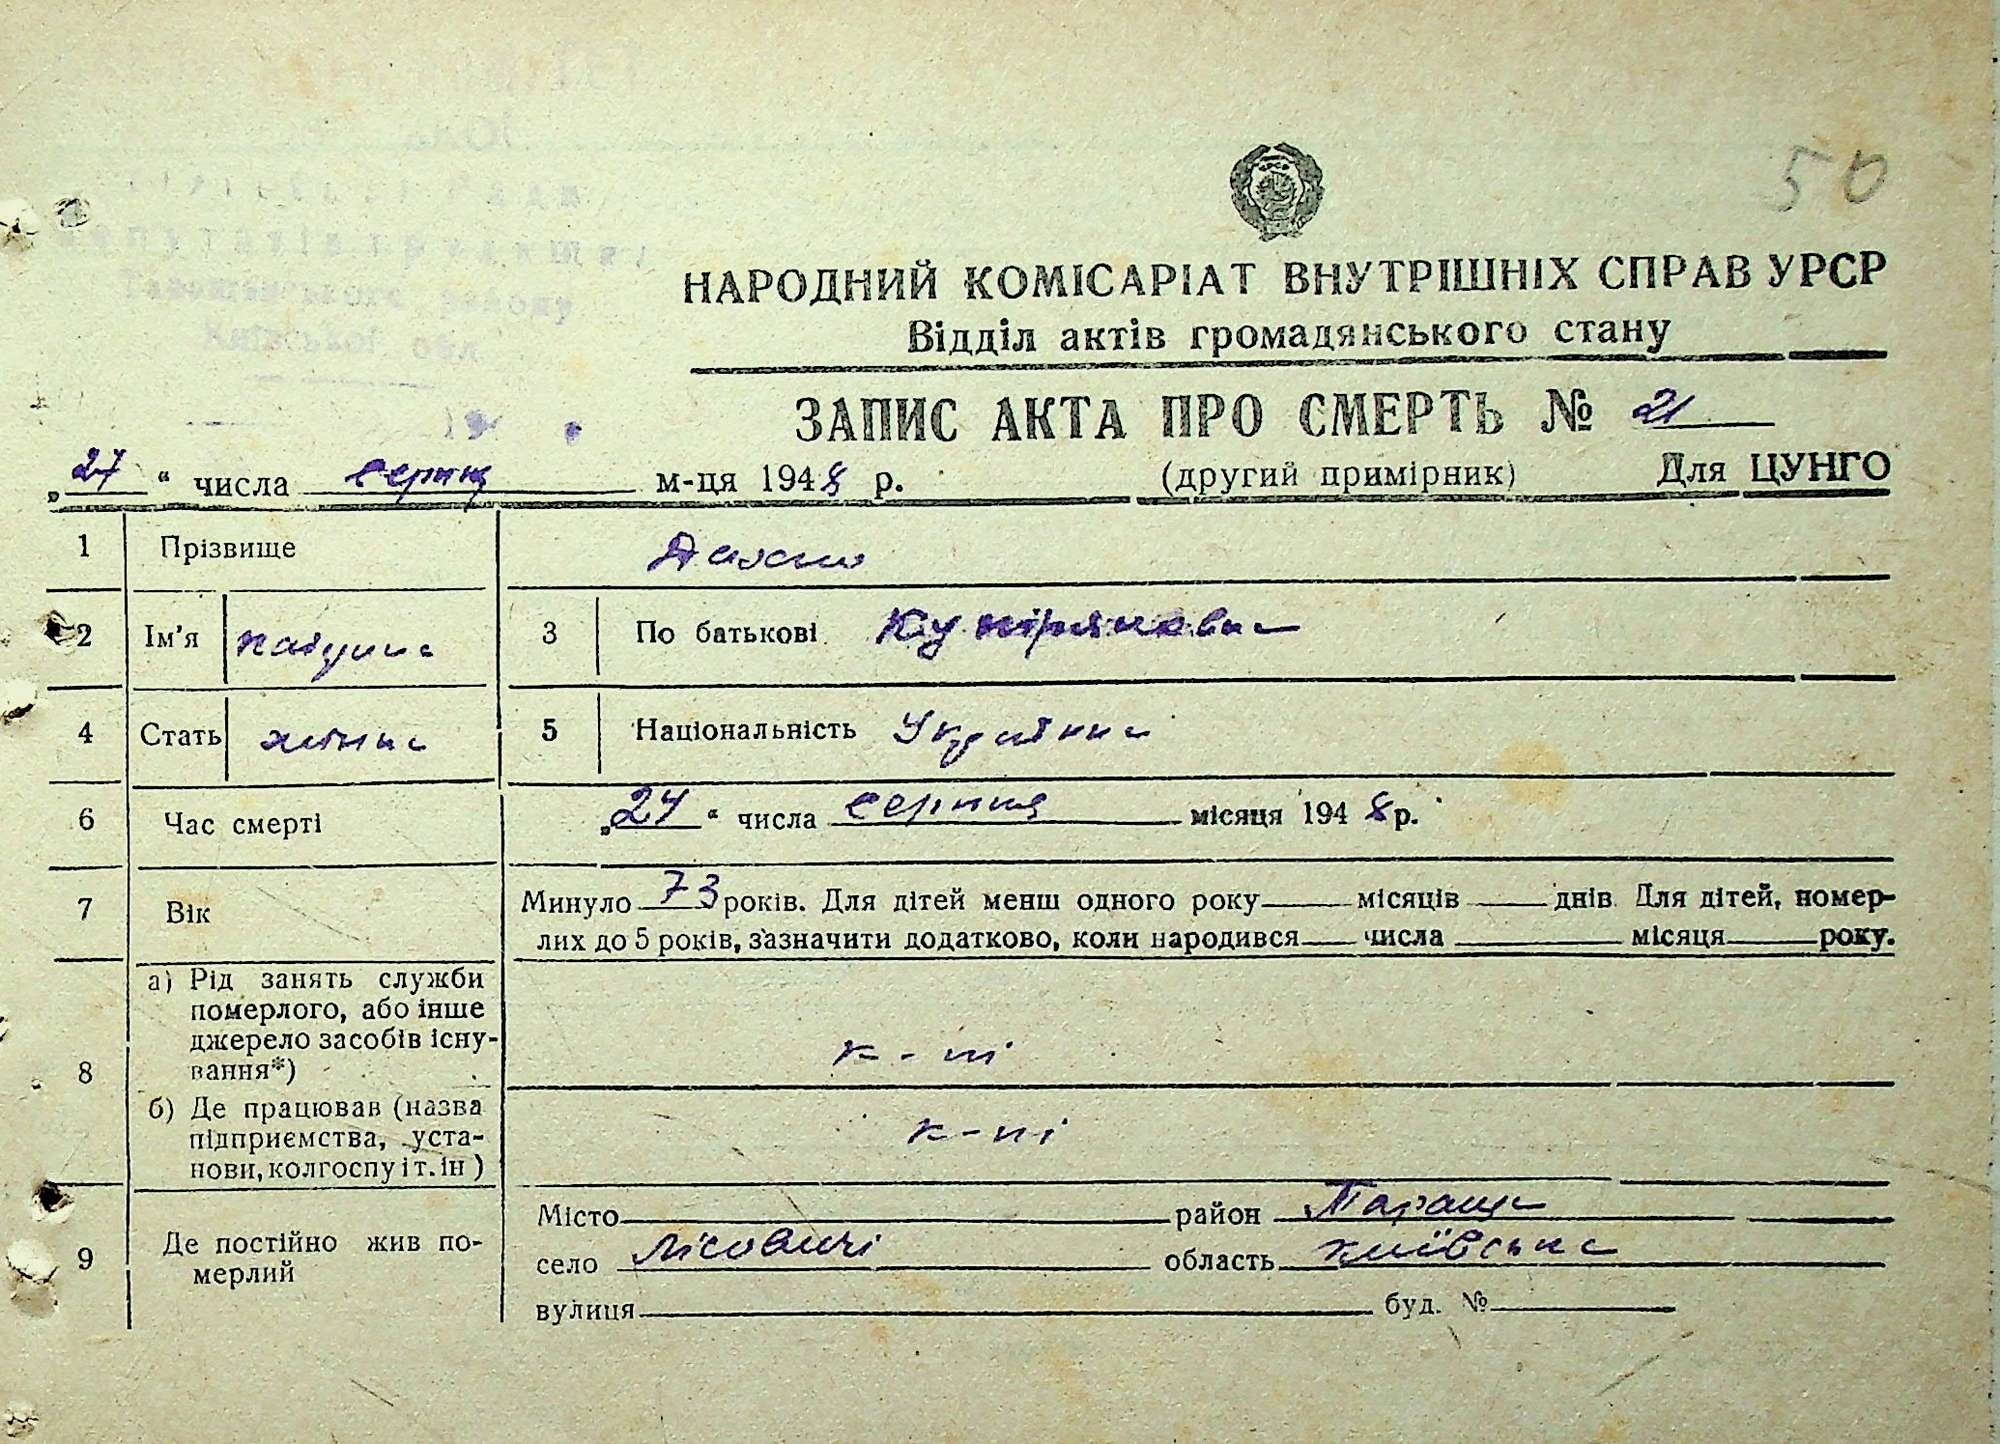 50
НАРОДНИЙ КОМІСАРІАТ ВНУТРІШНІХ СПРАВ УРСР
Відділ актів громадянського стану
ЗАПИС АКТА ПРО СМЕРТЬ № 21
„27“ числа серпня м-ця 1948 р. (другий примірник) Для ЦУНГО
1 Прізвище
2 Ім'я 3 По батькові
4 Стать жіноча 5 Національність Українка
6 Час смерті „24“ числа серпня місяця 1948 р.
7 Вік Минуло 73 років. Для дітей менш одного року місяців днів Для дітей, помер-
лих до 5 років, зазначити додатково, коли народився числа місяця року.
8 а) Рід занять служби
померлого, або інше
джерело засобів існу-
вання*) к-пі
б) Де працював (назва
підприємства, уста-
нови, колгоспу і т. ін) к-пі
9 Де постійно жив по-
мерлий
Місто район Тараща
село Лісовичі область київська
вулиця буд. №